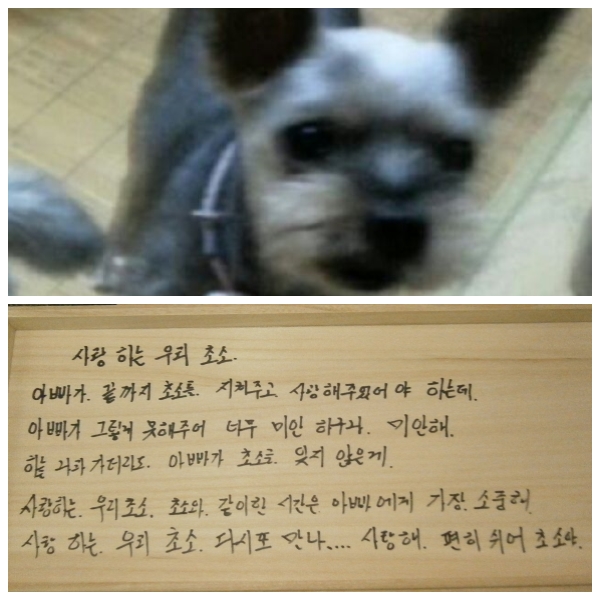 사랑 하는 우리 초소.
아빠가. 끝까지 초소를. 지켜주고 사랑해주었어 야 하는데.
아빠가 그렇게 못해주어 너무 미안 하구나. 미안해.
하늘 나라 가더라도. 아빠가 초소를. 잊지 않은게.
사랑하는. 우리초소. 초소와. 같이한 시간은 아빠에게 가장. 소중해.
사랑 하는. 우리 초소. 다시또 만나.... 사랑해. 편히 쉬어 초소야.